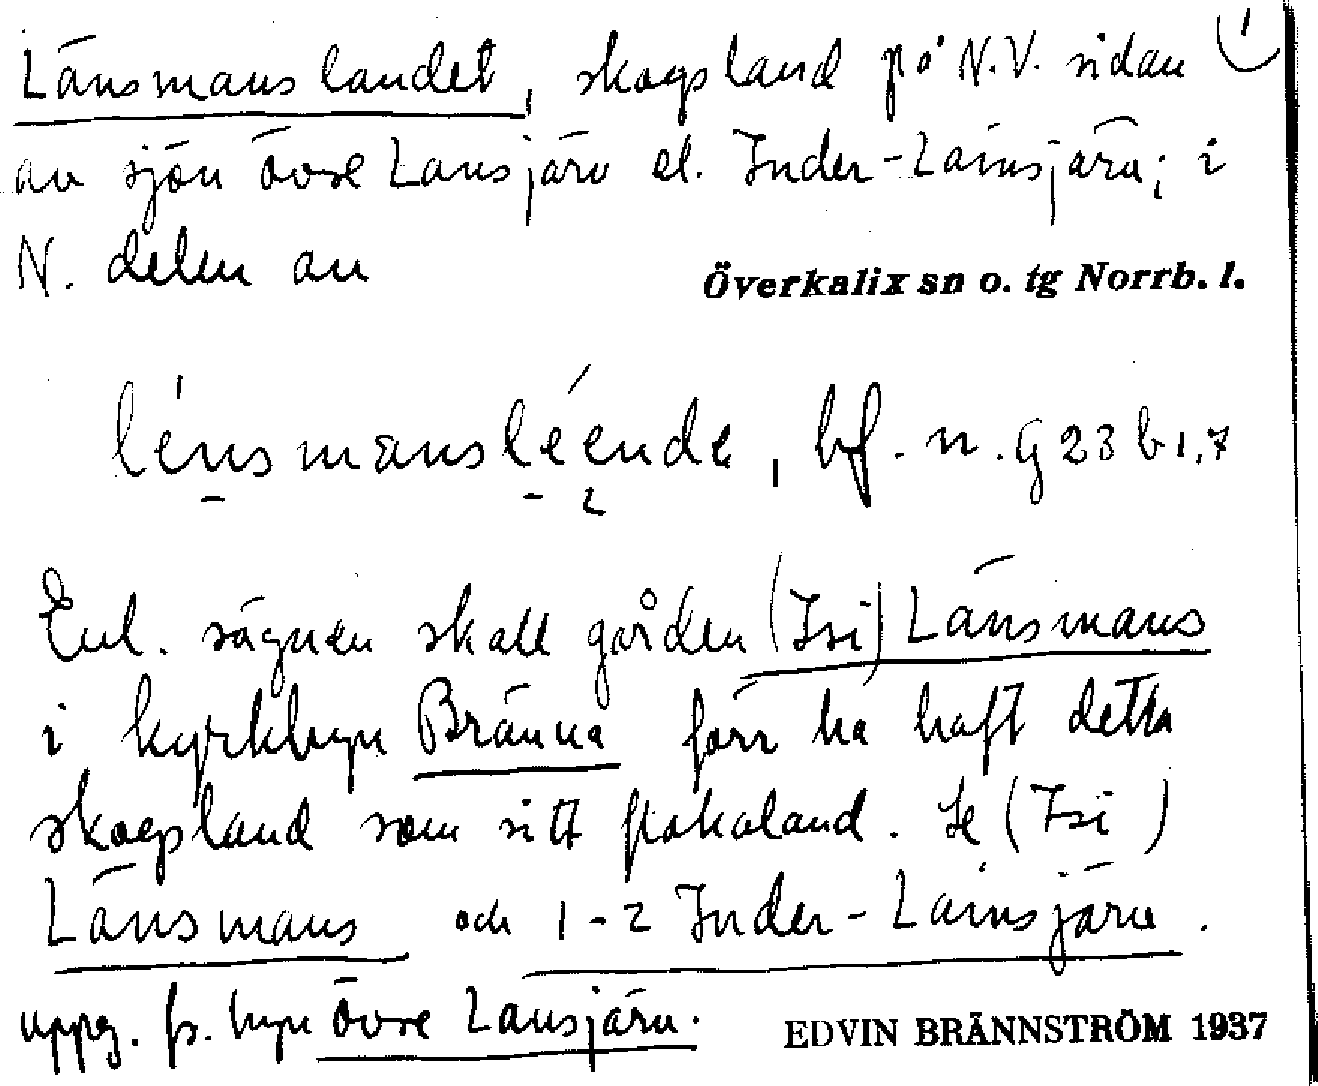 Länsmanslandet, skogsland på N.V. sidan 1
av sjön övre Lansjärv el. Inder-Lainsjärv; i
N. delen av
Överkalix sn o. tg Norrb. l.
lénsmansléende, bf. n. G 23 b 1,7
Enl. sägnen skall gården (Isi) Länsmans
i kyrkbyn Bränna förr ha haft detta
skogsland som sitt flakaland. Se (Isi)
Länsmans och 1-2 Inder-Lainsjärv.
uppg. fr. byn övre Lansjärv.
EDVIN BRÄNNSTRÖM 1937